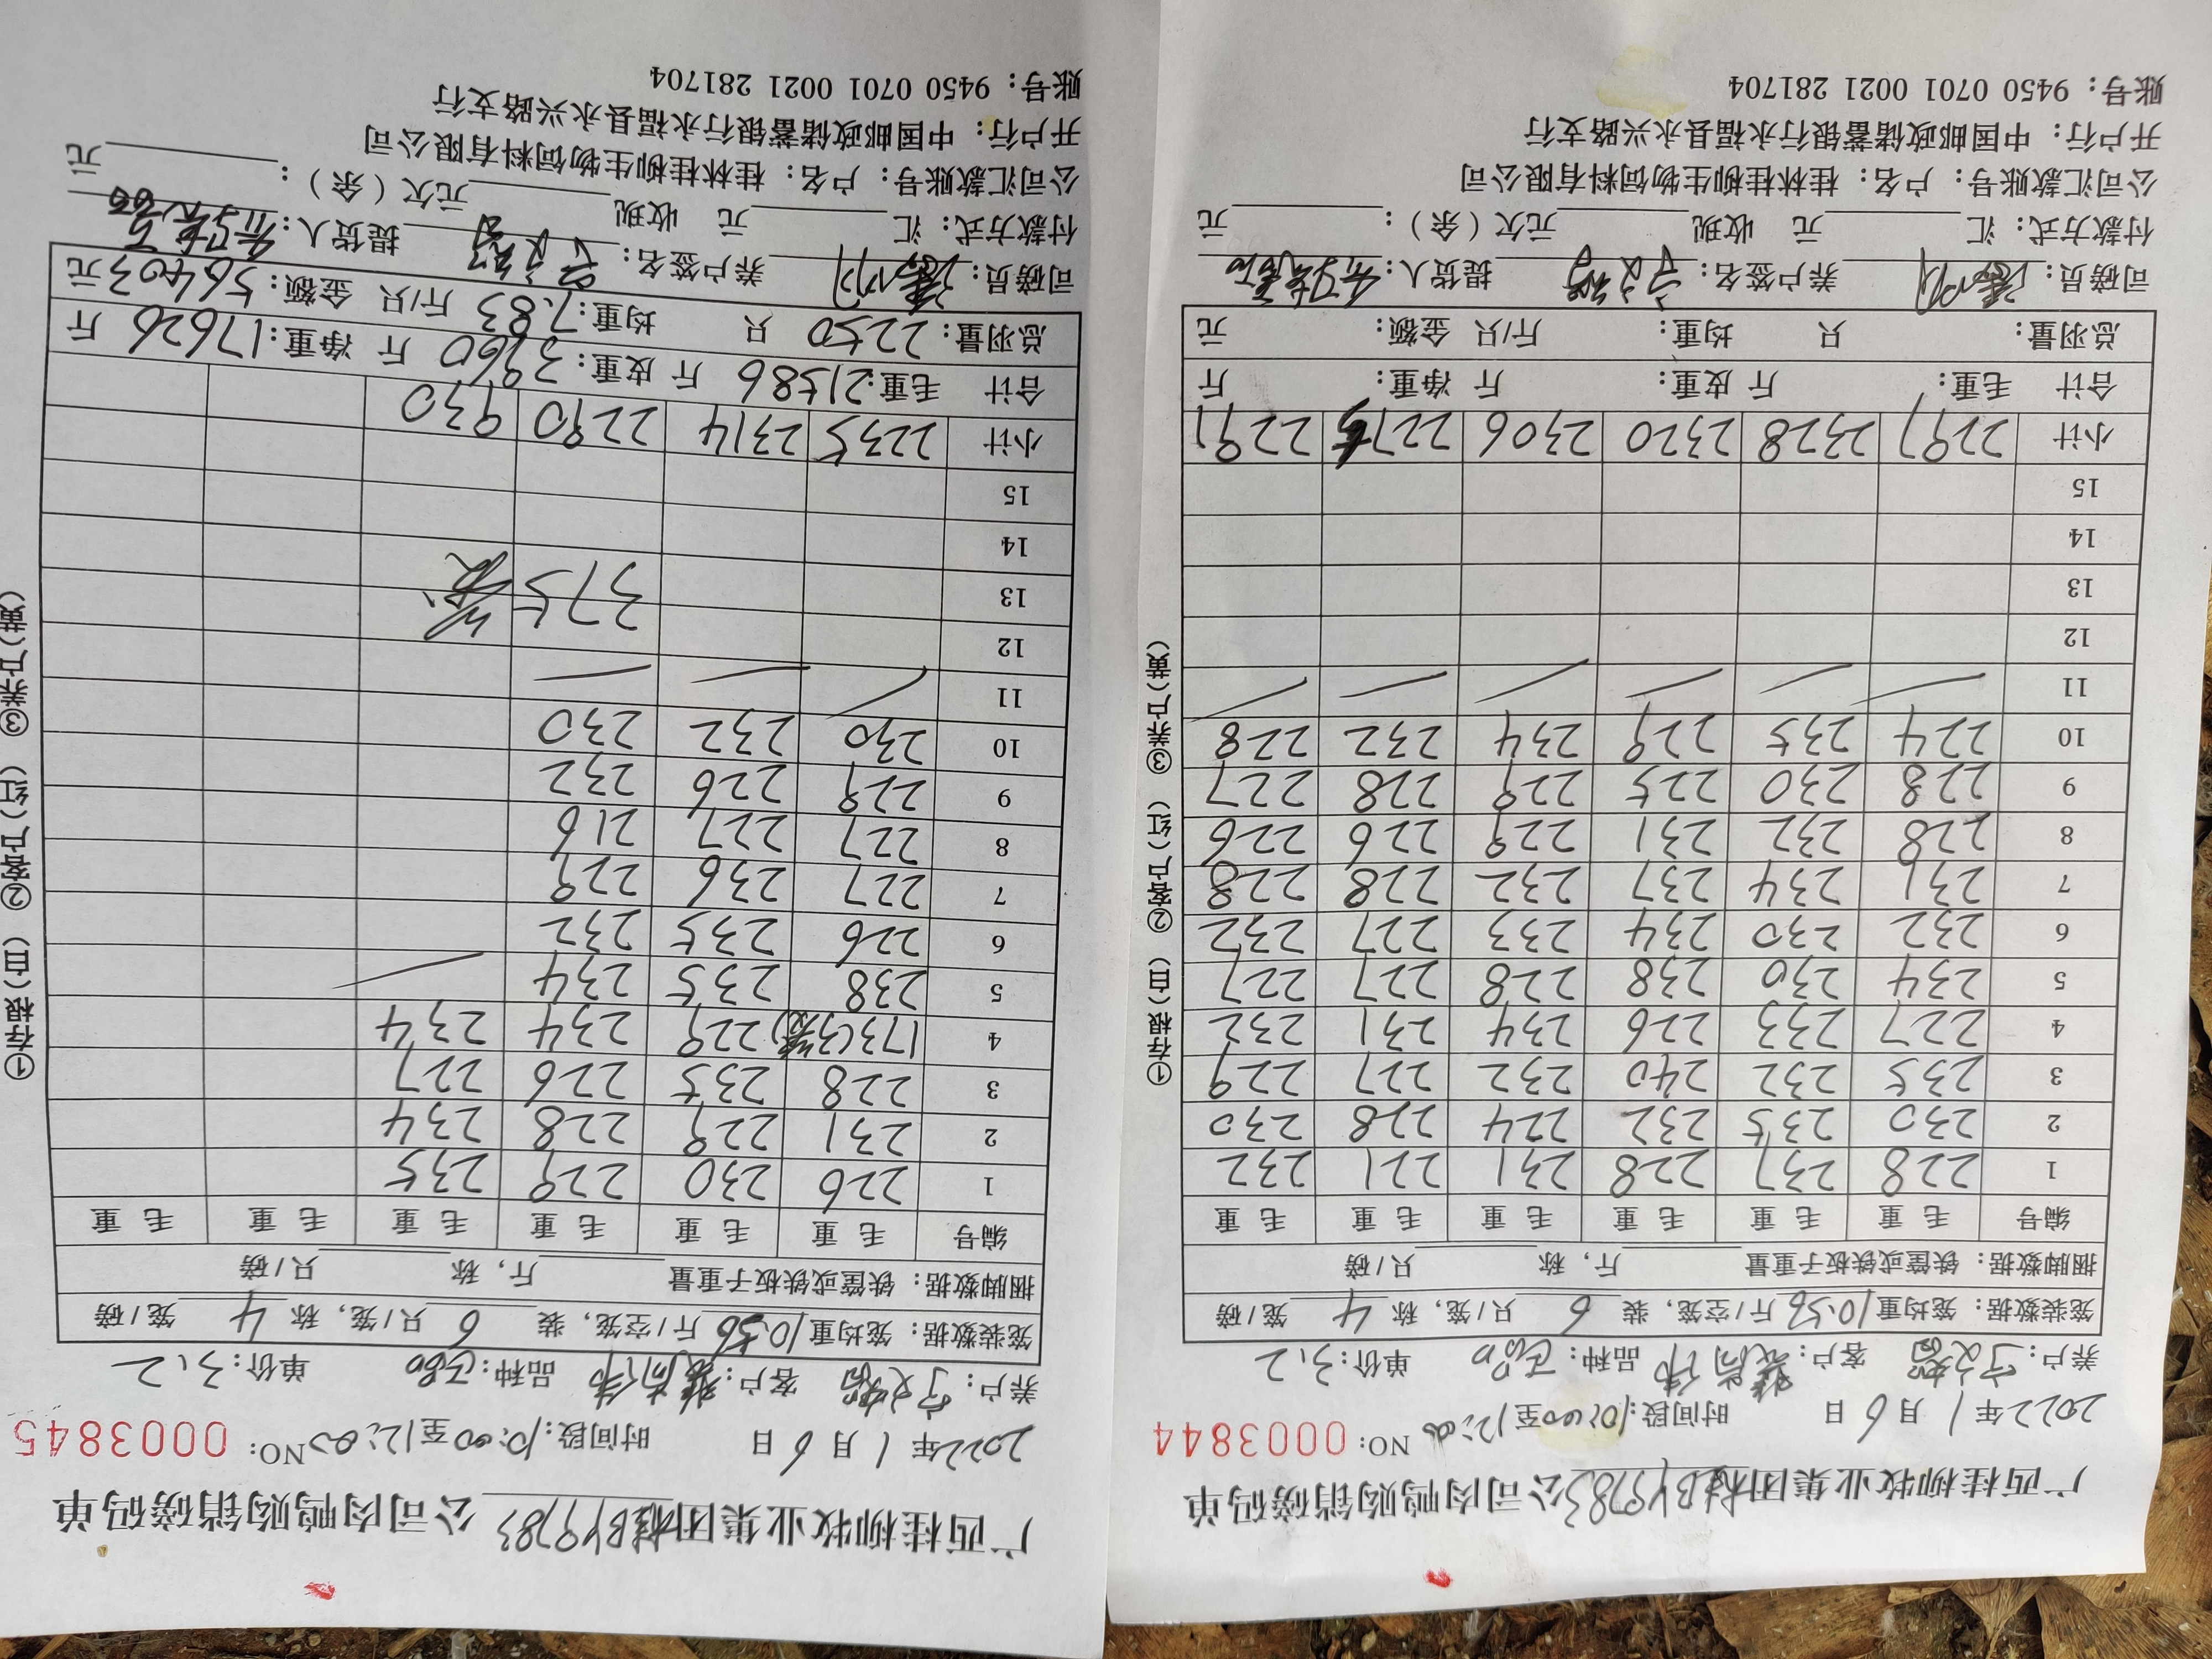 广西桂柳牧业集团桂BY9783公司肉鸭购销磅码单
2022年1月6日 时间段:10:00至12:00 NO: 0003844
养户: 客户: 品种: 单价:3.2
笼装数据: 笼均重10.56斤/空笼, 装6只/笼, 称4笼/磅
捆脚数据: 铁筐或铁板子重量 斤, 称 只/磅
编号 毛重 毛重 毛重 毛重 毛重 毛重
1 228 237 228 231 221 232
2 230 235 232 224 228 230
3 235 232 240 232 227 229
4 227 233 226 234 231 232
5 234 230 238 228 227 227
6 232 230 234 233 227 232
7 231 234 237 232 228 228
8 228 232 231 229 226 226
9 228 230 225 229 228 227
10 224 235 229 234 232 228
11
12
13
14
15
小计 2297 2328 2320 2306 2275 2291
合计 毛重: 斤 皮重: 斤 净重: 斤
总羽量: 只 均重: 斤/只 金额: 元
司磅员: 养户签名: 提货人:
付款方式: 汇 元 收现 元欠(余): 元
公司汇款账号: 户名: 桂林桂柳生物饲料有限公司
开户行: 中国邮政储蓄银行永福县永兴路支行
账号: 9450 0701 0021 281704
①存根(白) ②客户(红) ③养户(黄)
广西桂柳牧业集团桂BY9783公司肉鸭购销磅码单
2022年1月6日 时间段:10:00至12:00 NO: 0003845
养户: 客户: 品种: 单价:3.2
笼装数据: 笼均重10.56斤/空笼, 装6只/笼, 称4笼/磅
捆脚数据: 铁筐或铁板子重量 斤, 称 只/磅
编号 毛重 毛重 毛重 毛重 毛重 毛重
1 226 230 229 235
2 231 229 228 234
3 228 235 226 227
4 173(3笼) 229 234 234
5 238 235 234
6 226 235 232
7 227 236 229
8 227 227 216
9 229 226 232
10 230 232 230
11
12
13 375笼
14
15
小计 2235 2314 2290 930
合计 毛重:21586斤 皮重:3960斤 净重:17626斤
总羽量:2250只 均重:7.83斤/只 金额:56403元
司磅员: 养户签名: 提货人:
付款方式: 汇 元 收现 元欠(余): 元
公司汇款账号: 户名: 桂林桂柳生物饲料有限公司
开户行: 中国邮政储蓄银行永福县永兴路支行
账号: 9450 0701 0021 281704
①存根(白) ②客户(红) ③养户(黄)